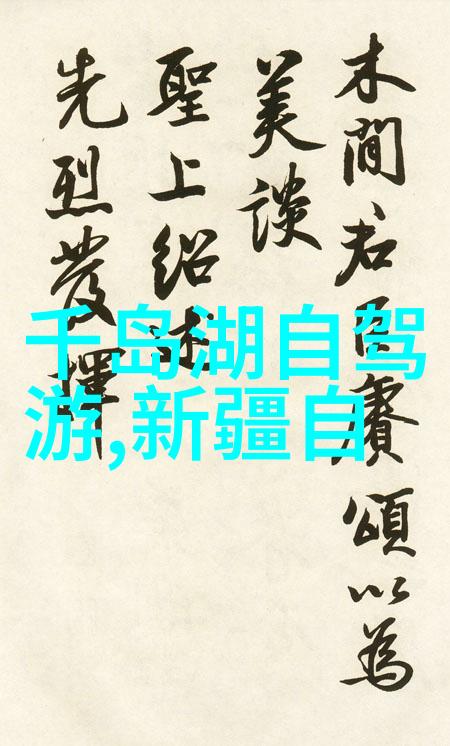 木間君臣賡頌以為
美談
聖上紹述
先烈發揮
千岛湖自驾
游,新疆自